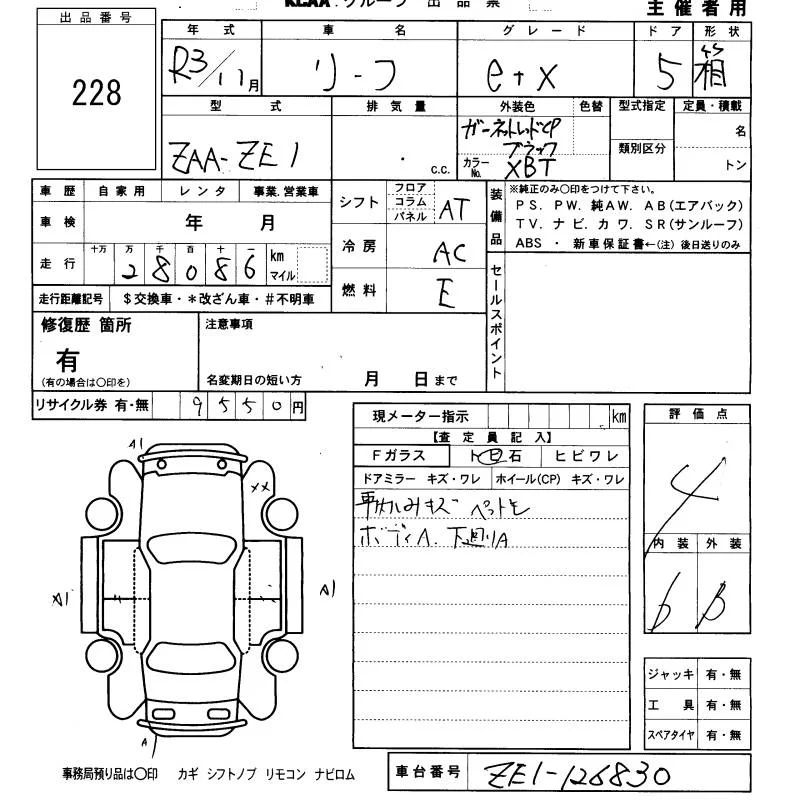 KCAA.グループ 出品票
主催者用
出品番号
228
年式 車名 グレード ドア 形状
R3/11月 リーフ e+X 5 箱
型式 排気量 外装色 色替 型式指定 定員・積載
ZAA-ZE1 . c.c. ガーネットレッドCP ブラック
カラーNo. XBT
類別区分
名
トン
車歴 自家用 レンタ 事業.営業車
車検 年 月
走行 十万 万 千 百 十 一 km マイル
28086
走行距離記号 $交換車・*改ざん車・#不明車
シフト フロア コラム パネル AT
冷房 AC
燃料 E
装備品
※純正のみ〇印をつけて下さい。
PS. PW. 純AW. AB(エアバック)
TV. ナビ. カワ. SR(サンルーフ)
ABS ・ 新車保証書←(注) 後日送りのみ
セールスポイント
修復歴 箇所
有
(有の場合は〇印を)
注意事項
名変期日の短い方 月 日まで
リサイクル券 有・無 9550円
現メーター指示 km
【査定員記入】
Fガラス ト石 ヒビワレ
ドアミラー キズ・ワレ ホイール(CP) キズ・ワレ
キズ ペットモ
ボディA. 下廻りA
評価点
4
内装 外装
b B
A1
XX
A1
A1
A
ジャッキ 有・無
工具 有・無
スペアタイヤ 有・無
事務局預り品は〇印 カギ シフトノブ リモコン ナビロム
車台番号 ZE1-126830